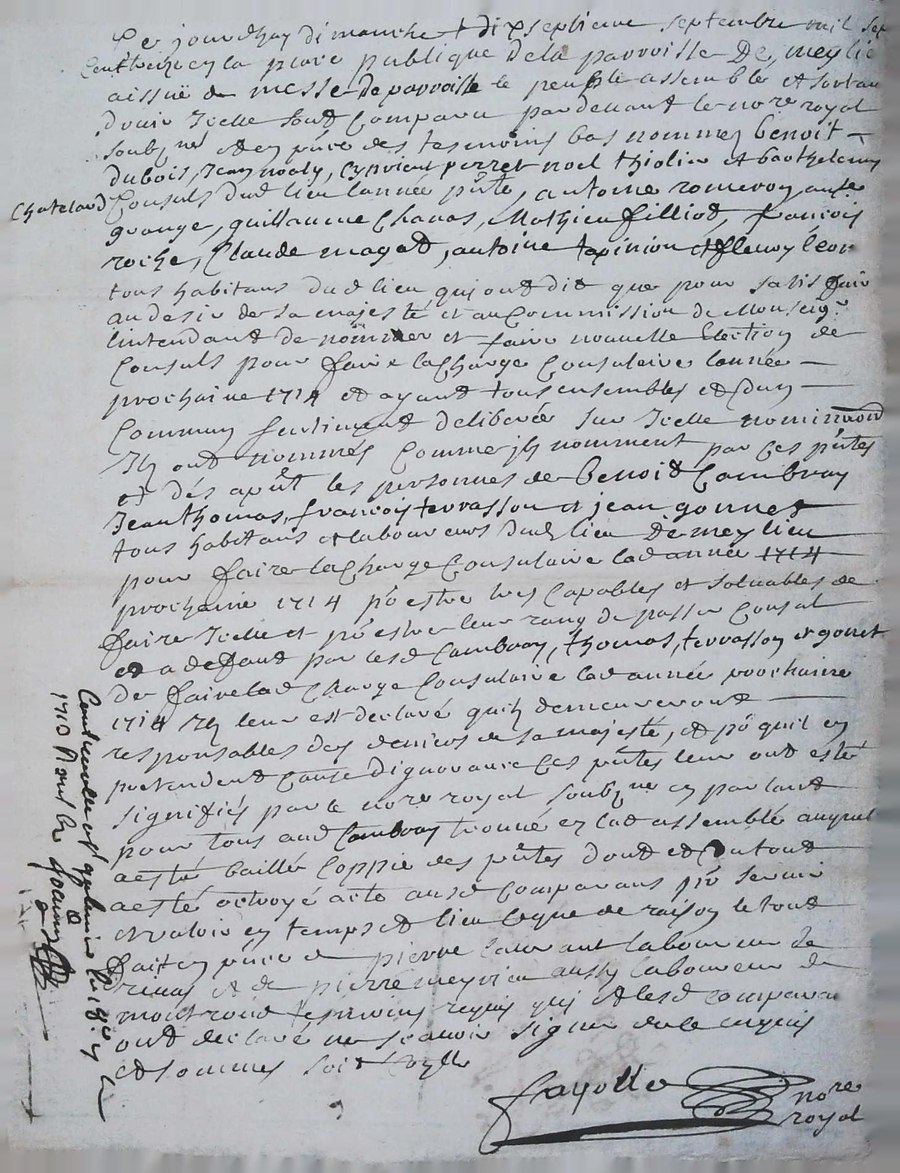 Ce jourdhuy dimanche dixseptieme septembre mil sept
cent treize en la place publique de la parroisse De meylie
a issuë de messe de parroisse le peuple assemble et sortan
douir Icelle sont comparu pardeuant le nore royal
soubzne et en pñce des tesmoins bas nommez benoit
dubois, Jean noaly, cyprient perret noel thiolie et barthelemy
chateland Consuls dud lieu lannée pñte, antoine romeyon
grange, guillaume Chauas, Mathieu filliod, francois
roche, Claude magad, antoine tapinion et fleury leon
tous habitans dud lieu qui ont dit que pour satisfair
au desir de sa majesté et au Commission de Monseigr
lintendant de nommer et faire nouuelle Election de
Consuls pour faire la Charge Consulaire lannée
prochaine 1714 et ayant tous ensembles et dun
Commun sentiment deliberée sur Icelle nomination
Ils ont nommés comme ils nomment par ces pñtes
et dés apñt les personnes de Benoit Cambray
Jean thomas, francois terrasson et jean gonnet
tous habitans et laboureurs dud lieu De meylieu
pour faire la Charge Consulaire lad année 1714
prochaine 1714 pr estre les Capables et soluables de
faire Icelle et pr estre leur rang de passer Consul
et a defaut par lesd Cambray, thomas, terrasson et gonet
de faire lad Charge Consulaire lad année prochaine
1714 Il leur est declaré quils demeureront
responsables des deniers de sa majesté, et pr quil en
pretendent cause dignorance ces pñtes leur ont esté
signifiés par le nore royal soubzne en parlant
pour tous aud Cambray trouué en lad assemblé auquel
a esté baillé coppie des pñtes dont et du tout
a esté octroyé acte ausd comparans pr seruir
et valoir en temps et lieu ce que de raison le tout
fait en pñce de pierre laurant laboureur de
et de pierre meyrieu aussy laboureur de
montrond tesmoins requis qui et lesd comparan
ont declaré ne scauoir signer de ce enquis
et sommés soit Conlle
fayolle nore
royal
Conlle
1713 Reçu